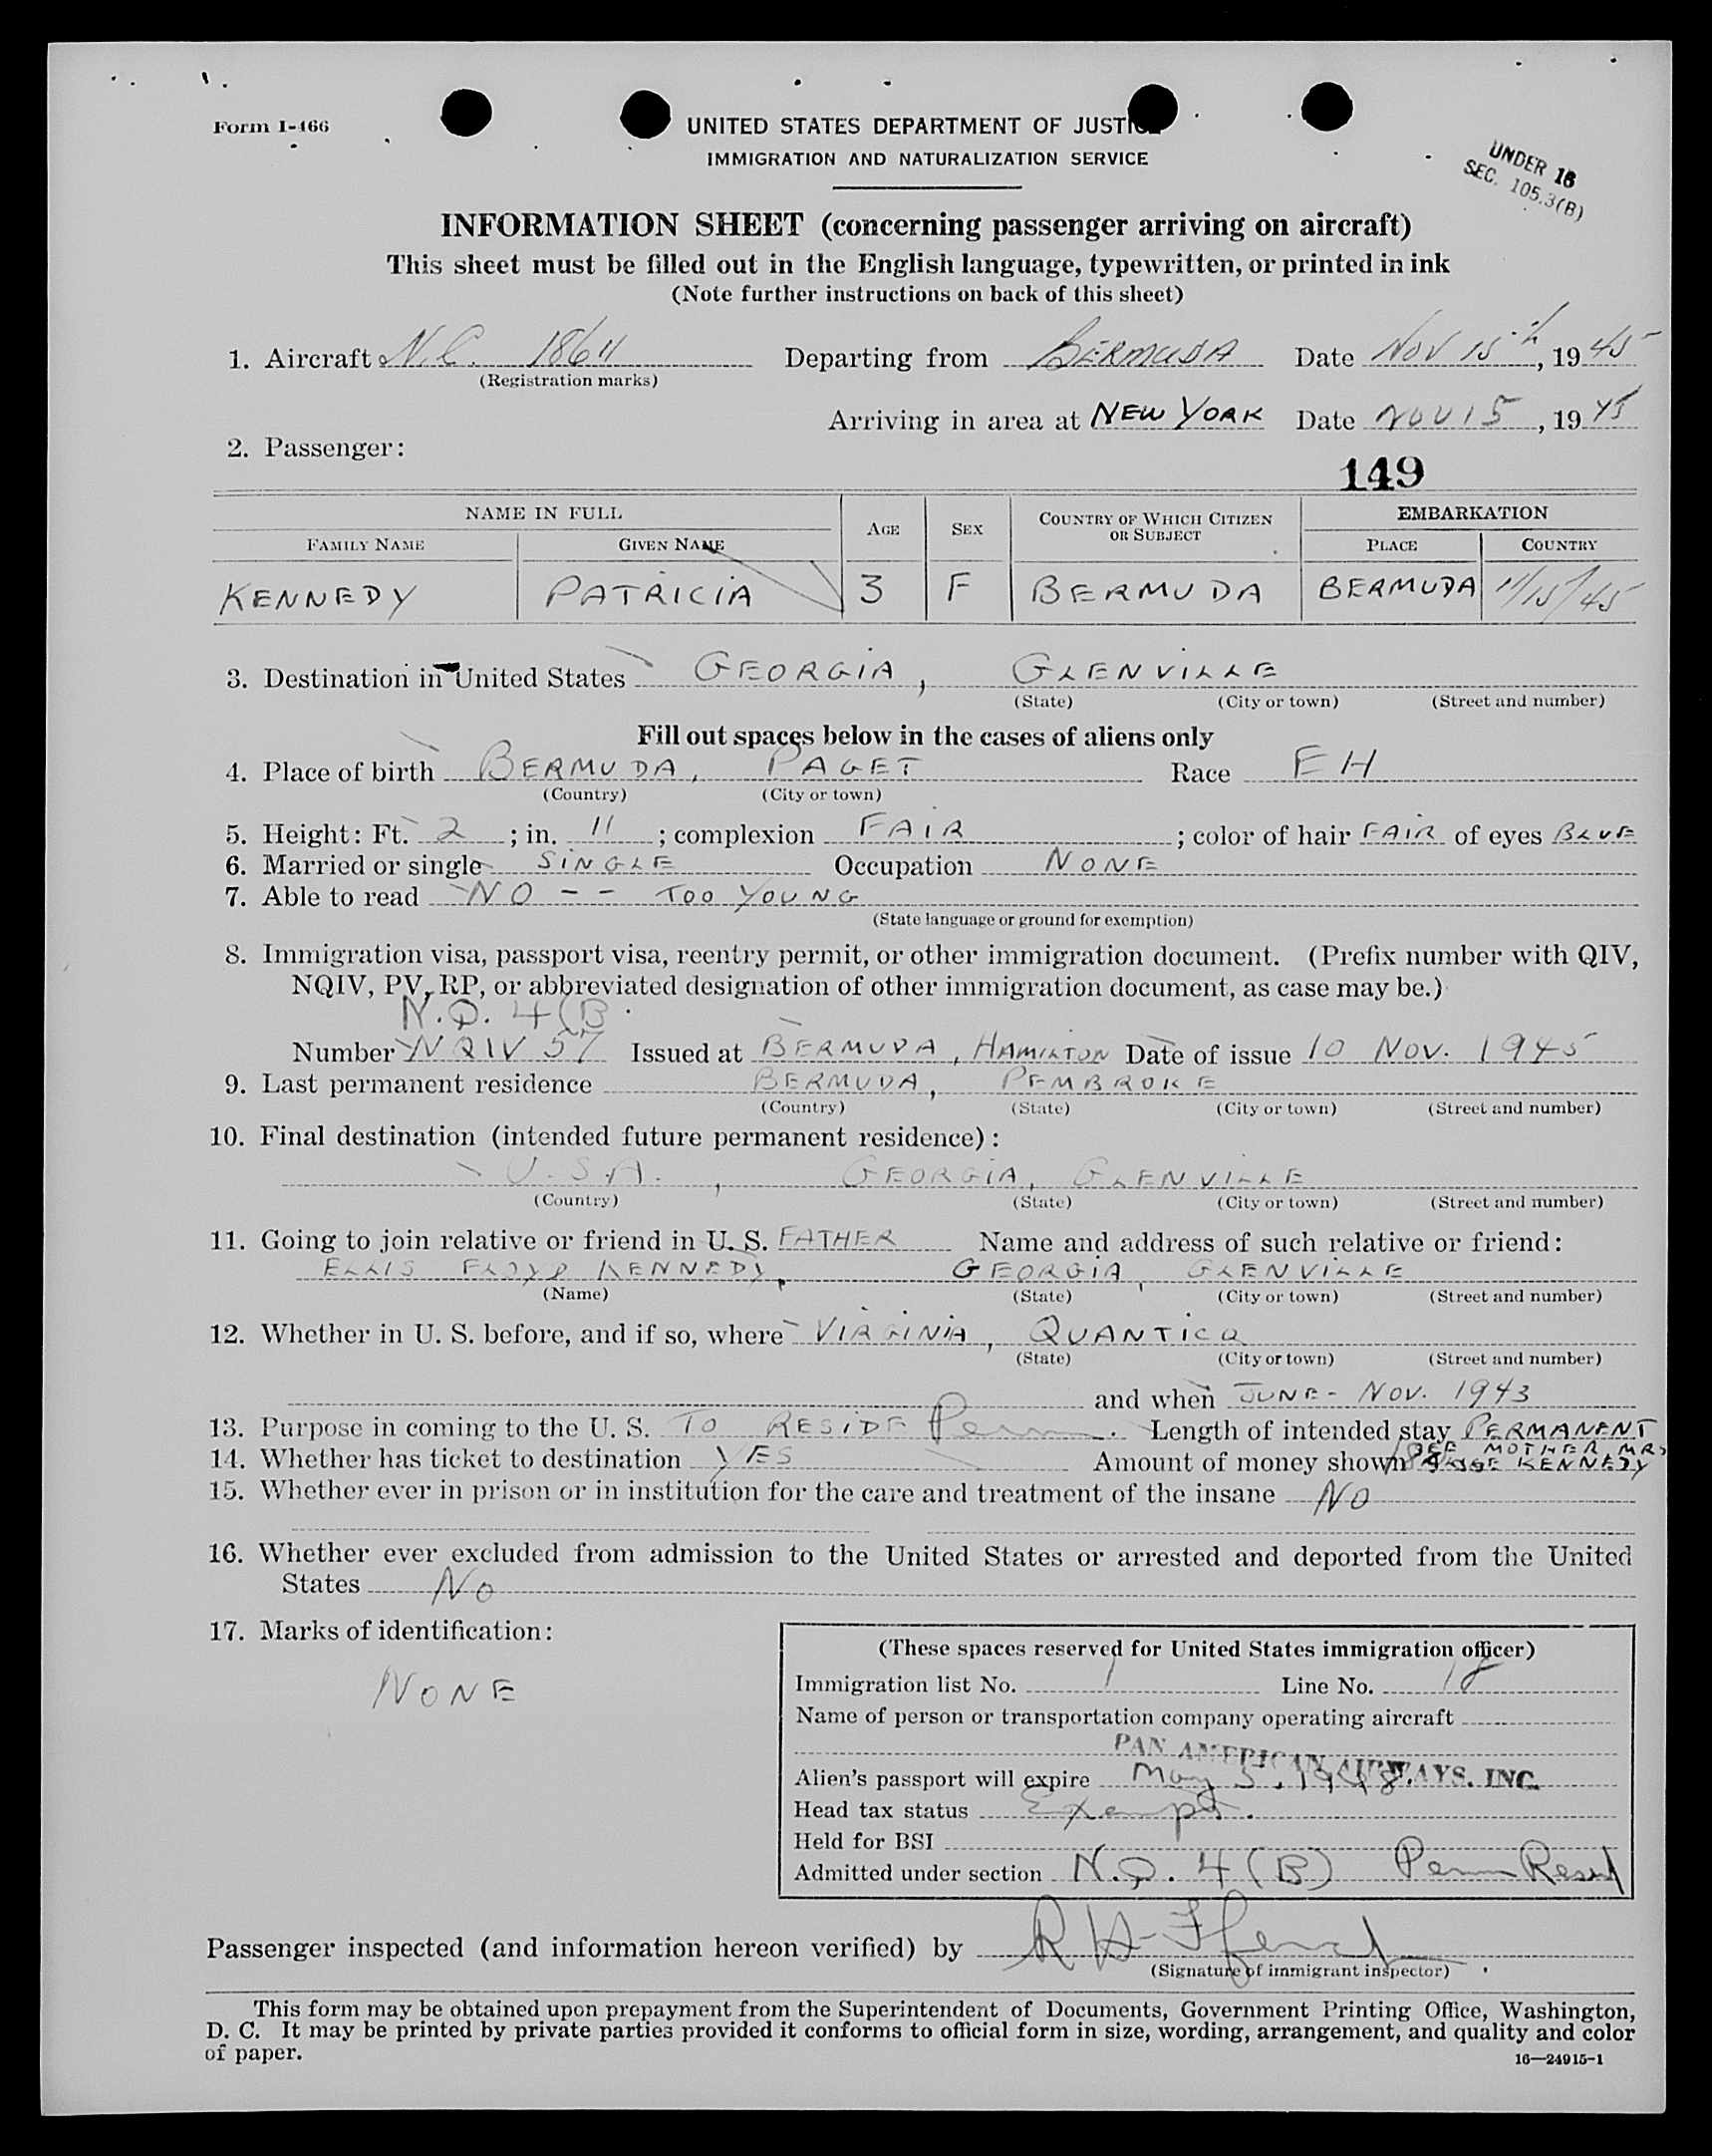 Form I-466
UNITED STATES DEPARTMENT OF JUSTICE
IMMIGRATION AND NATURALIZATION SERVICE
UNDER 16
SEC. 105.3(B)
INFORMATION SHEET (concerning passenger arriving on aircraft)
This sheet must be filled out in the English language, typewritten, or printed in ink
(Note further instructions on back of this sheet)
1. Aircraft N.C. 18611 Departing from BERMUDA Date NOV 15th, 1945
(Registration marks)
Arriving in area at NEW YORK Date NOV 15, 1945
2. Passenger:
149
NAME IN FULL AGE SEX COUNTRY OF WHICH CITIZEN OR SUBJECT EMBARKATION
FAMILY NAME GIVEN NAME PLACE COUNTRY
KENNEDY PATRICIA 3 F BERMUDA BERMUDA 11/15/45
3. Destination in United States GEORGIA, GLENVILLE
(State) (City or town) (Street and number)
Fill out spaces below in the cases of aliens only
4. Place of birth BERMUDA, PAGET Race EH
(Country) (City or town)
5. Height: Ft. 2; in. 11; complexion FAIR; color of hair FAIR of eyes BLUE
6. Married or single SINGLE Occupation NONE
7. Able to read NO -- TOO YOUNG
(State language or ground for exemption)
8. Immigration visa, passport visa, reentry permit, or other immigration document. (Prefix number with QIV,
NQIV, PV, RP, or abbreviated designation of other immigration document, as case may be.)
N.Q. 4(B
Number NQIV 57 Issued at BERMUDA, HAMILTON Date of issue 10 NOV. 1945
9. Last permanent residence BERMUDA, PEMBROKE
(Country) (State) (City or town) (Street and number)
10. Final destination (intended future permanent residence):
U.S.A., GEORGIA, GLENVILLE
(Country) (State) (City or town) (Street and number)
11. Going to join relative or friend in U. S. FATHER Name and address of such relative or friend:
ELLIS FLOYD KENNEDY, GEORGIA, GLENVILLE
(Name) (State) (City or town) (Street and number)
12. Whether in U. S. before, and if so, where VIRGINIA, QUANTICO
(State) (City or town) (Street and number)
and when JUNE - NOV. 1943
13. Purpose in coming to the U. S. TO RESIDE Perm. Length of intended stay PERMANENT
14. Whether has ticket to destination YES Amount of money shown SEE MOTHER MRS KENNEDY
15. Whether ever in prison or in institution for the care and treatment of the insane NO
16. Whether ever excluded from admission to the United States or arrested and deported from the United
States NO
17. Marks of identification:
NONE
(These spaces reserved for United States immigration officer)
Immigration list No. 1 Line No. 18
Name of person or transportation company operating aircraft
PAN AMERICAN AIRWAYS, INC.
Alien's passport will expire May 5, 1948.
Head tax status Exempt.
Held for BSI
Admitted under section N.Q. 4(B) Perm Resid
Passenger inspected (and information hereon verified) by
(Signature of immigrant inspector)
This form may be obtained upon prepayment from the Superintendent of Documents, Government Printing Office, Washington,
D. C. It may be printed by private parties provided it conforms to official form in size, wording, arrangement, and quality and color
of paper.
16—24915-1